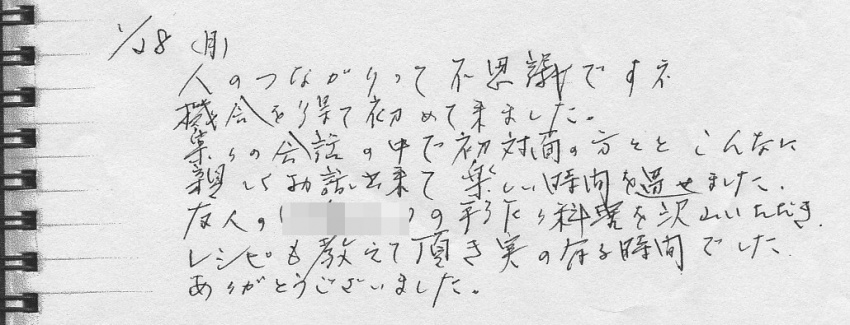 1/28 (月)
人のつながりって不思議ですネ
機会を得て初めて来ました。
集りの会話の中で初対面の方々とこんなに
親しくお話出来て楽しい時間を過せました。
友人の( )の手作り料理を沢山いただき、
レシピも教えて頂き実の有る時間でした。
ありがとうございました。